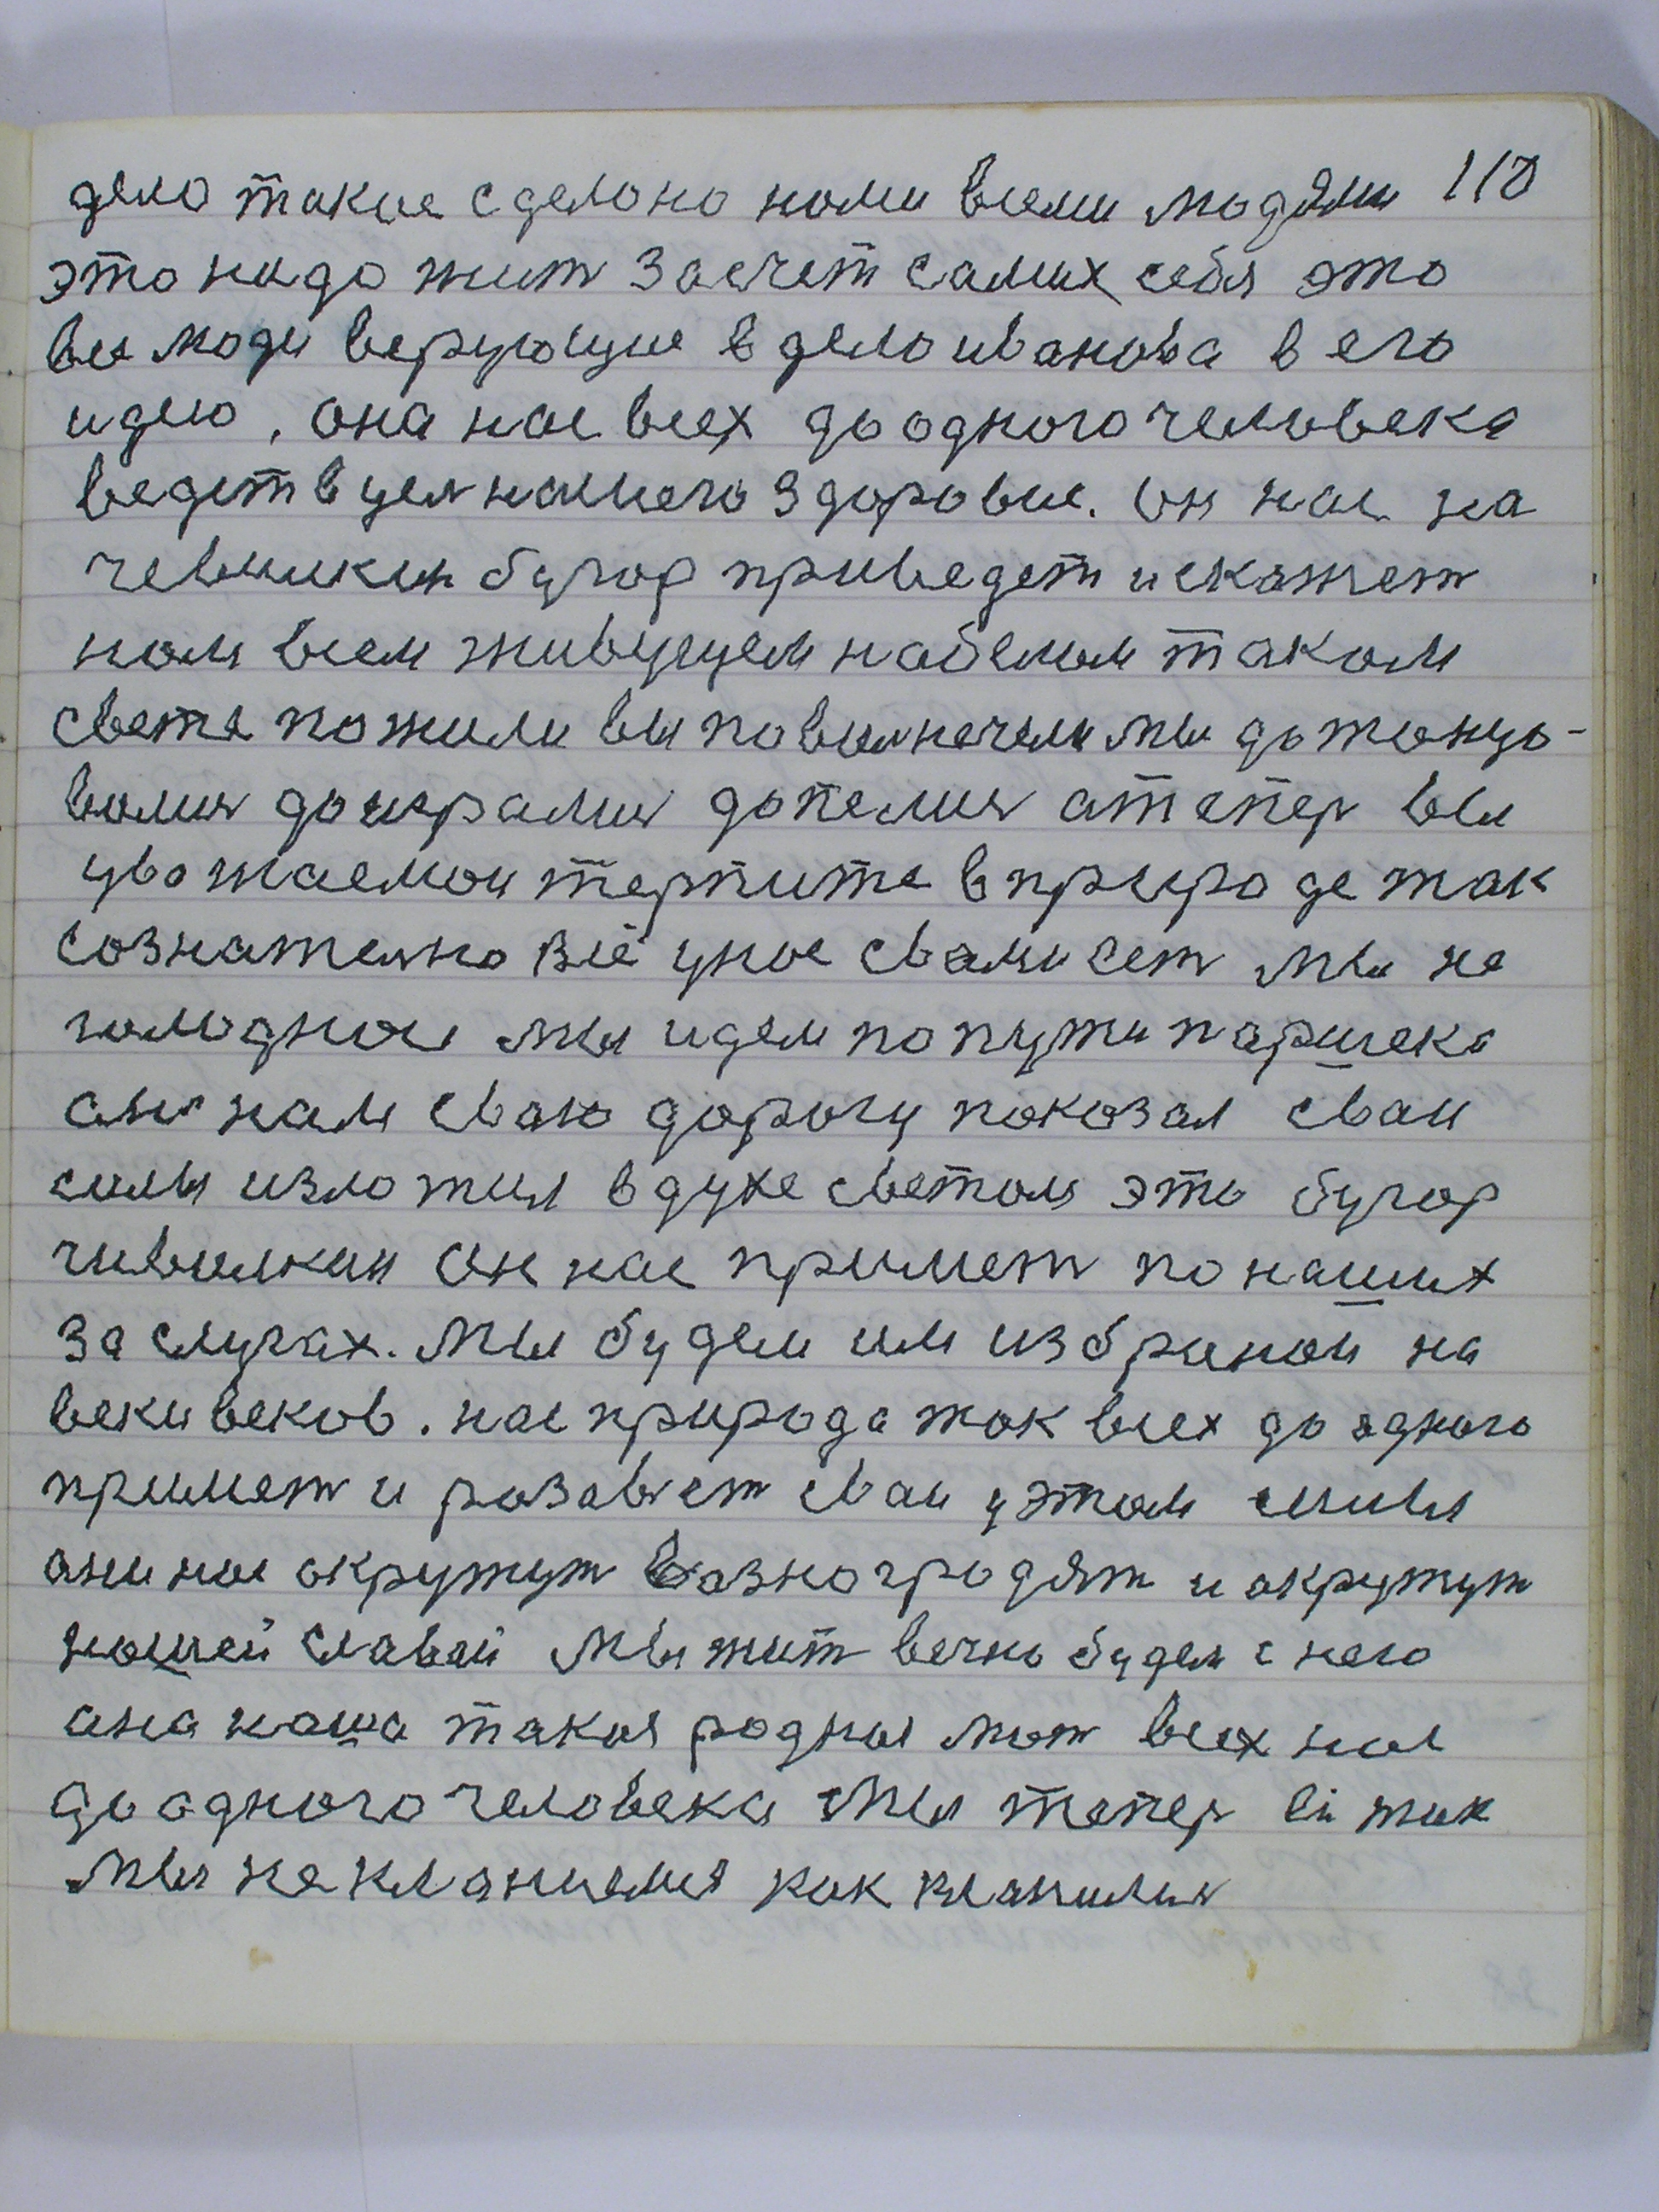 дело такое сделоно номи всеми людями 110
это надо жит засчет самих себя это
все люди верующие в дело иванова в его
идею, она нас всех до одного человека
ведет в цел нашего здоровие. он нас на
чевилкин бугор приведет искажет
ном всем живущем на белом таком
свете пожили вы повыличели мы дотонцо-
волися доигралися допелися атепер вы
уважаемои терпите в природе так
сознателно всё унас свами ест мы не
голоднои мы идем попути паршека
они нам сваю дорогу показал сваи
силы изложил в духе светом это бугор
чивилкин он нас примет понаших
заслугах. мы будем им избранои на
веки веков. нас природа так всех до одного
примет и розавьет сваи уэтом силы
они нас окружут вазноградят и окружут
нашей славай мы жит вечно будем с него
ана наша такоя родныя мат всех нас
до одного человека мы тепер ей так
мы не кланяемся как кланились